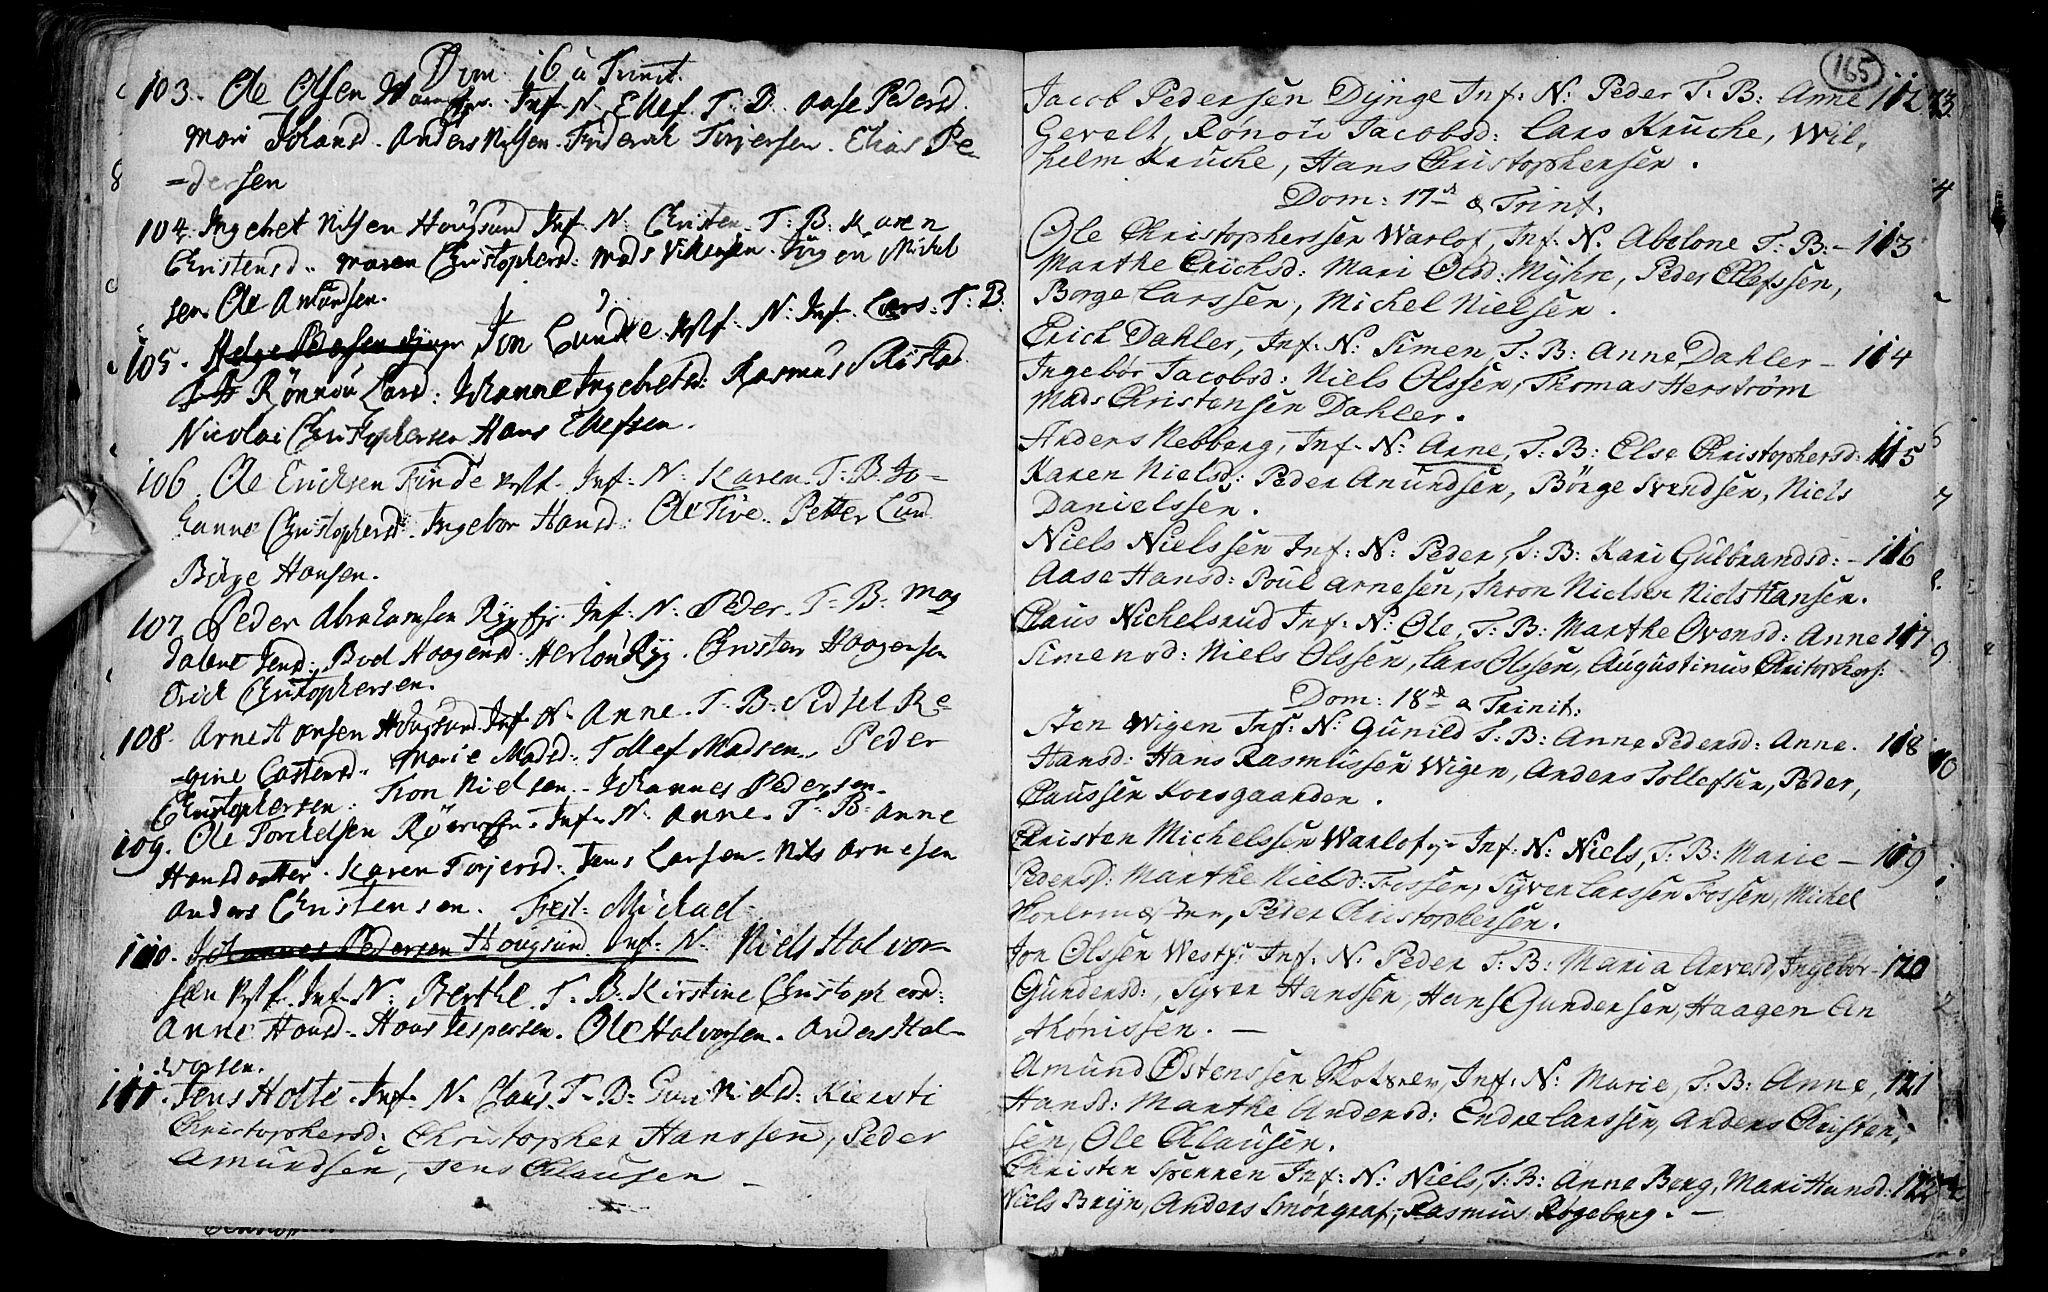 Dom. 16 a Trinit.
103. Ole Olsen Inf. N. Ellef. T. B. Aase Pedersd.
Mari Johansd. Anders Nilsen. Friderich Torjersen. Elias Pe-
=dersen
104. Ingebret Nilsen Hougsund Inf. N: Christen. T: B: Karen
Christensd.. Maren Christophersd: Mads Nichel
sen. Ole Amundsen.
105. Helge Pedersen Jon Lunde Inf. N: Lars: T: B.
Rönnou Larsd: Johanne Ingebretsd: Rasmus
Nicolai Christophersen Hans Ellefsen.
106. Ole Ericksen Finde Inf. N: Karen. T: B. Jo-
hanne Christophersd. Ingebor Hansd: Ole Petter Lund
Börge Hansen.
107 Peder Abrahamsen Inf: N: Peder. T. B. Mag
dalene Jensd: Bod Haagensd. Christen Haagensen
Erick Christophersen.
108. Arne Hansen Hougsund. Inf. N. Anne. T. B. Sidsel Re-
=gine Castensd.. Marie Madsd: Tollef Madsen. Peder
Christophersen: Tron Nielsen.. Johannes Pedersen.
109. Ole Torckelsen Inf. N. Anne. T. B: Anne
Hansdatter. Karen Torjersd: Jens Larsen. Nils Arnesen
Anders Christensen. Fest: Michael
110. Johannes Pedersen Hougsund. Inf: N. Niels Halvor-
sen Inf. N: Berthe. T. B. Kirstine Christophersd:
Anne Hansd. Hans Jespersen. Ole Halvorsen. Anders Hal-
vorsen.
111. Jens Holte. Inf. N. Claus. T. B: Gunnild: Kiersti
Christophersd: Christopher Hanssen, Peder
Amundsen, Jens Clausen –
165
Jacob Pedersen Dÿnge Inf: N: Peder T: B: Anne 112
Gevelt, Rønou Jacobsd: Lars Kruche, Wil,
helm Kruche, Hans Christophersen.
Dom: 17 a Trinit.
Ole Christopherssen Warlof, Inf: N. Abelone T: B: – 113
Marthe Erichsd: Mari Olsd: Mÿhre, Peder Ellefssen,
Borge Larssen, Michel Nielsen.
Erich Dahler, Inf: N: Simen, T: B: Anne Dahler – 114
Ingebør Jacobsd: Niels Olssen, Thomas Herström
Mads Christensen Dahler.
Anders Nebberg, Inf. N: Arne, T: B: Else Christophersd: 115
Karen Nielsd: Peder Amundsen, Börge Svendsen, Niels
Danielssen.
Niels Nielssen Inf: N: Peder, T: B: Kari Gulbrandsd: – 116
Aase Hansd: Poul Arnesen, Thron Nielsen Niels Hansen.
Claus Nichelsrud Inf: N: Ole, T: B: Marthe Ovensd: Anne 117
Simensd: Niels Olssen, Lars Olssen, Augustinus Christophers:
Dom: 18 a Trinit:
Sten Wigen Inf: N: Gunild T: B: Anne Pedersd: Anne. 118
Hansd: Hans Rasmussen Wigen, Anders Tollefsen, Peder,
Claussen Korsgaarden.
Christen Michelssen Warlof Inf: N: Niels, T: B: Marie – 119
Pedersd: Marthe Nielsd: Fossen, Syver Larssen Fossen, Michel
Peder Christophersen.
Jon Olssen Inf: N: Peder T: B: Maria Arvesd, Ingebør 120
Gundersd:, Syver Hanssen, Hans Gundersen, Haagen An
thonissen. –
Amund Østenssen Inf: N: Marie, T: B: Anne, 121
Hansd: Marthe Andersd: Endre Larssen, Anders Christen,
sen, Ole Clausen.
Christen Inf: N: Niels, T: B: Anne Berg, Mari Hansd: 122
Niels Brÿn, Anders Smørgraf, Rasmus Røgeberg. –